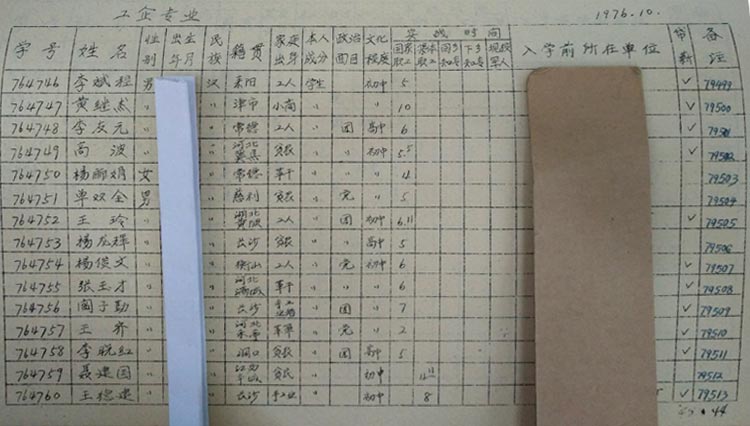 工企专业 1976.10.
学号 姓名 性别 出生年月 民族 籍贯 家庭出身 本人成分 政治面目 文化程度 实战时间 入学前所在单位 带薪 备注
国家职工 基本职工 回乡知青 下乡知青 现役军人
764746 李斌程 男 汉 耒阳 工人 学生 初中 5 ✓ 79499
764747 黄继杰 〃 〃 津市 小商 〃 〃 10 ✓ 79500
764748 李友元 〃 〃 常德 工人 〃 团 高中 6 ✓ 79501
764749 高波 〃 〃 河北 贫农 〃 初中 5.5 ✓ 79502
764750 杨 娟 女 〃 常德 革干 〃 〃 4 79503
764751 单双全 男 〃 慈利 贫农 〃 党 〃 5 79504
764752 王玲 〃 〃 工人 〃 团 初中 6.11 ✓ 79505
764753 杨 辉 〃 〃 长沙 贫农 〃 高中 5 79506
764754 杨俊文 〃 〃 衡山 工人 〃 党 初中 6 ✓ 79507
764755 张玉才 〃 〃 河北 革干 〃 〃 6 ✓ 79508
764756 阎子勤 〃 〃 长沙 〃 团 〃 7 ✓ 79509
764757 王齐 〃 〃 河北 革军 〃 党 〃 2 ✓ 79510
764758 李晓红 〃 〃 洞口 贫农 〃 团 高中 5 ✓ 79511
764759 聂建国 〃 〃 江西 贫民 初中 79512
764760 王德建 〃 〃 长沙 手工业 初中 8 ✓ 79513
44